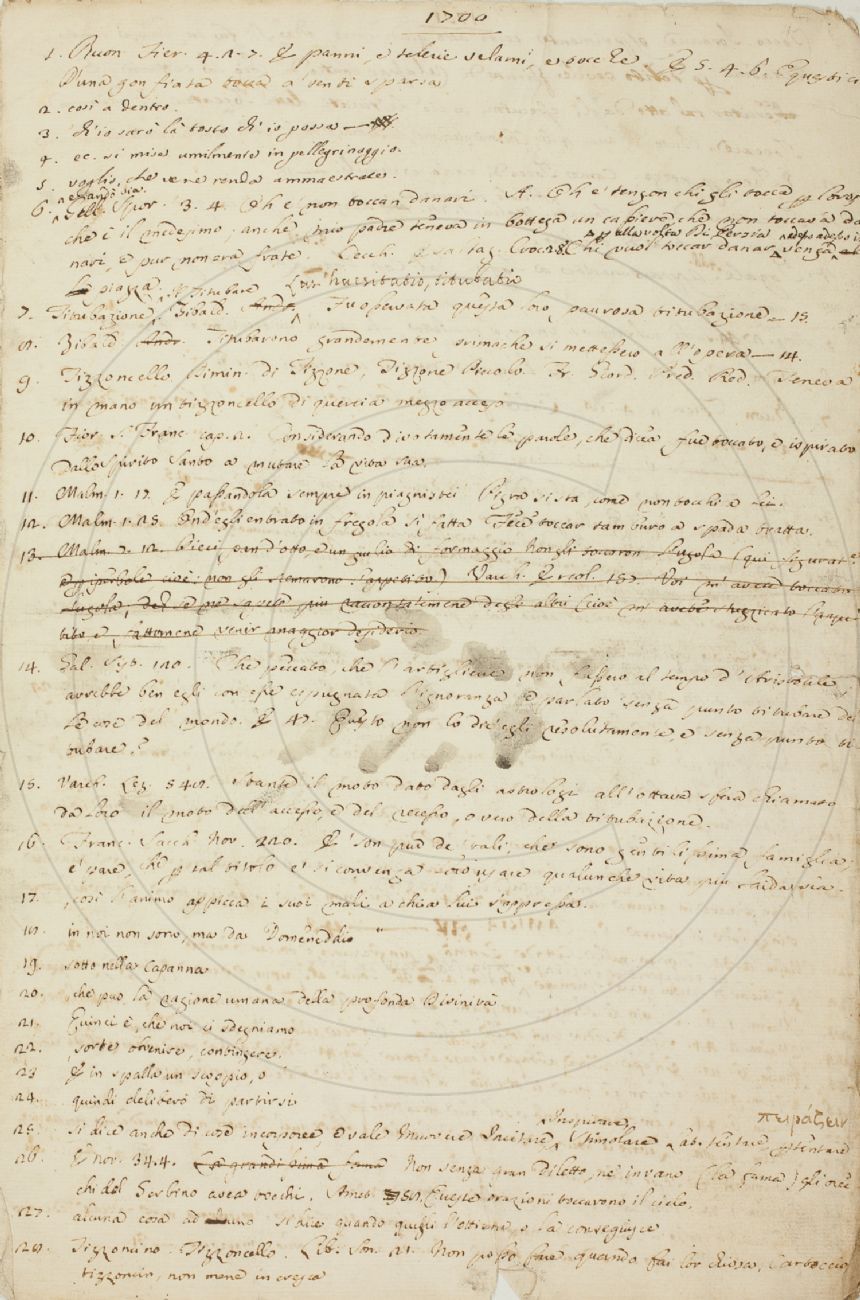 1700
1. Buon. Fier. 4. 2. 7. E panni, e telerie velami, e docce. E 5. 4. 6. E questi ci
D'una gonfiata a' venti sparsa
2. così a dentro.
3. ch'io sarò là tosto ch'io possa —
4. ec. si mise umilmente in pellegrinaggio.
5. voglio, che ve ne renda ammaestrate.
6. Fior. 3. 4. Ch'e' non toccan danari. A. Ch'e' tengon chi gli tocca p loro
che è il medesimo; anche mio padre teneva in bottega un cassiere, che non toccava da
nari, e pur non era frate. Cecch. Chi vuol toccar danar, senza
piazza. Titubare Lat. haesitatio, titubatio
7. Titubazione. Fu operata questa loro paurosa titubazione — 15.
8. Titubarono grandemente, primachè si mettessero a l'opera — 14.
9. Tizzoncello Dimin. di Tizzone, Tizzone Piccolo. Fr. Giord. Pred. Red. Teneva
in mano un tizzoncello di quercia mezzo acceso
10. Fior. S. Franc. cap. 2. Considerando divotamente le parole, che dicea fue toccato, e ispirato
dallo Spirito Santo a mutare la vita sua.
11. Malm. 1. 17. E passandola sempre in piagnistei Pigra si sta, come non tocchi a lei.
12. Malm. 1. 25. Ond'egli entrato in fregola sì fatta Fece toccar tamburo a spada tratta.
13. Malm. 2. 12. Dieci pan d'otto, e un giulio di formaggio Non gli toccaron l'ugola (qui figurat.
iperbole cioè: non gli scemarono l'appetito) Varch. Ercol. Voi m'avete toccato
l'ugola, e se ne sapete più raccontatemene degli altri (cioè m'avete stuzzicato l'appe
tito e fattomene venir maggior desiderio
14. Gal. Sist. 120. Che peccato, che l'artiglierie non fussero al tempo d'Aristotile
avrebbe ben egli con esse espugnata l'ignoranza e parlato senza punto titubare del
le cose del mondo. E 47. Questo non lo dic'egli resolutamente, e senza punto ti
tubare?
15. Varch. Lez. Stante il moto dato dagli astrologi all'ottava sfera chiamato
da loro il moto dell'accesso, e del recesso, o vero della titubazione.
16. Franc. Sacch. Nov. 220. E' son pur de' tali, che sono gentilissima famiglia
e' pare, che p tal titolo e' si convenga loro usare qualunche vita più laida sia.
17. così l'animo appicca i suoi mali a chi a lui s'appressa.
18. in noi non sono, ma da Domeneddio
19. sotto nella Capanna
20. che può la ragione umana della profonda Divinità
21. Quinci è, che noi ci sdegniamo
22. sorte obvenire, contingere.
23 E in spalla un scoppio, o
24. quindi deliberò di partirsi
πειράζειν
25. si dice anche di cose incorporee e vale Muovere Incitare, Inspirare, Stimolare Lat. tentare,
26. E nov. 34. 4. Non senza gran diletto, nè invano (la fama) gli orec
chi del Gerbino avea tocchi. Amet. Queste orazioni toccavono il cielo.
27. alcuna cosa ad uno si dice quando quegli l'ottiene, o la conseguisce
28. Tizzoncino. Tizzoncello. Lib. Son. 21. Non posso fare quando fai lor chiosa,
tizzoncin, non me ne incresca